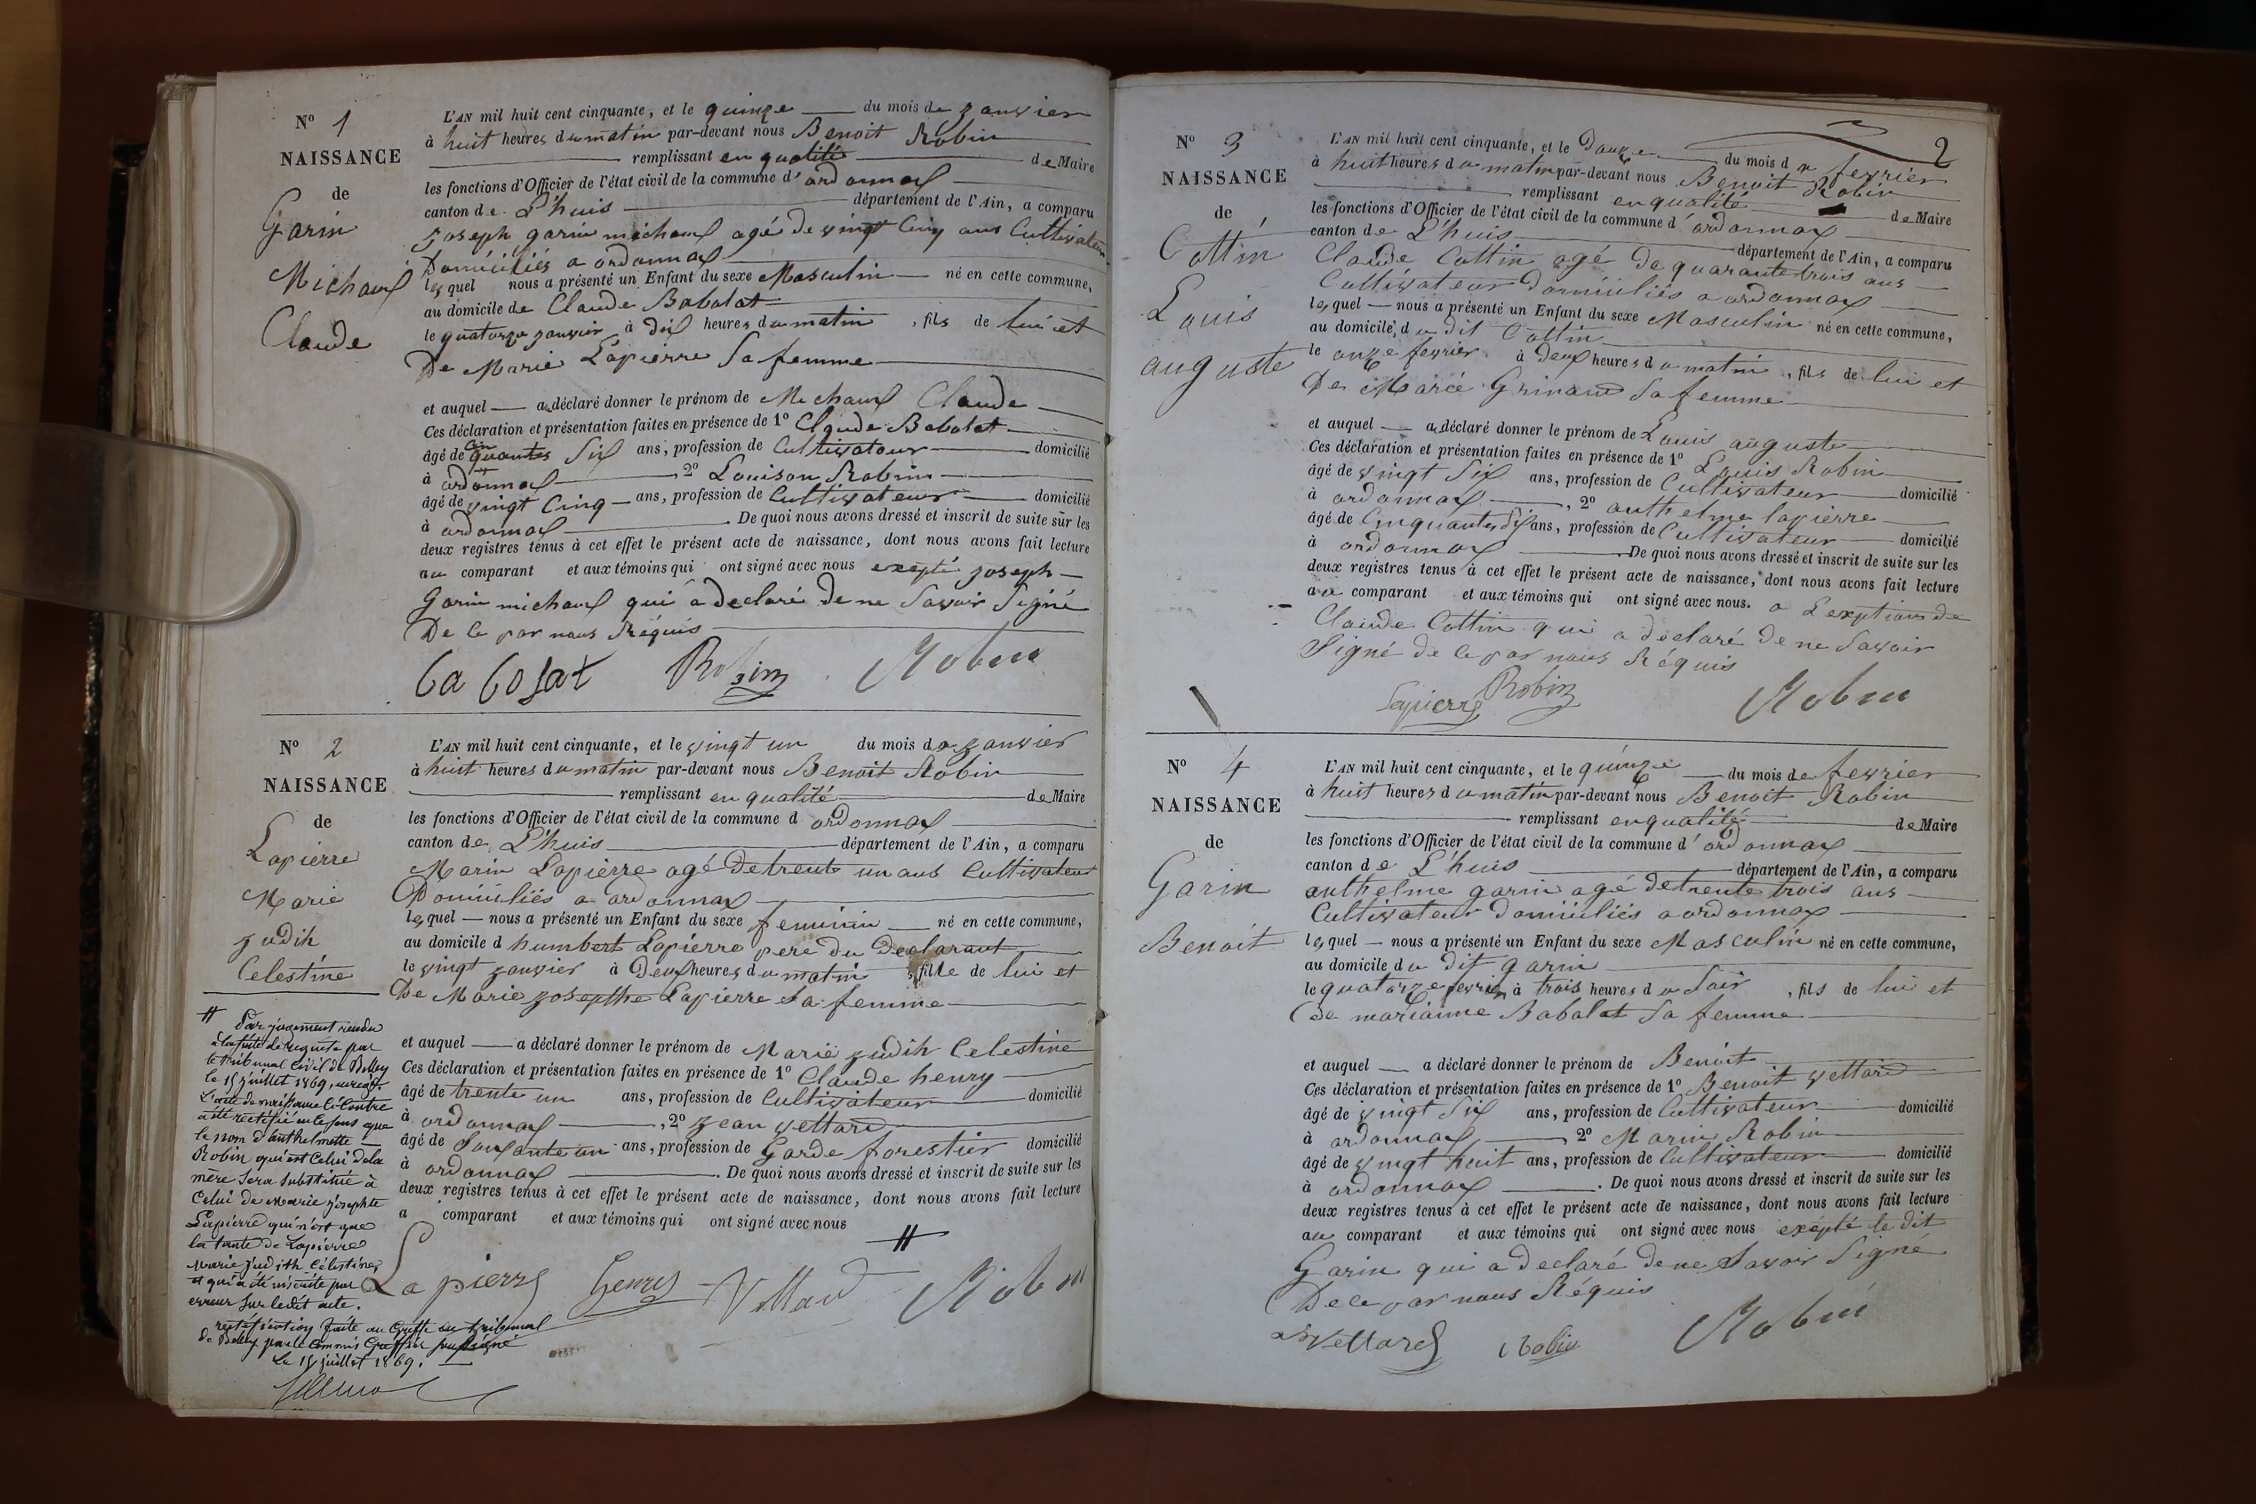 N° 1
NAISSANCE
de
Garin
Michaux
Claude
L'AN mil huit cent cinquante, et le quinze du mois de janvier
à huit heures du matin par-devant nous Benoit Robin
remplissant en qualité de Maire
les fonctions d'Officier de l'état civil de la commune d'ordonnax
canton de L'huis département de l'Ain, a comparu
joseph garin michaux agé de vingt Cinq ans Cultivateur
Domiciliés a ordonnax
lequel nous a présenté un Enfant du sexe Masculin né en cette commune,
au domicile de Claude Babolat
le quatorze janvier à dix heures du matin, fils de lui et
De Marie Lapierre Sa femme
et auquel a déclaré donner le prénom de Michaux Claude
Ces déclaration et présentation faites en présence de 1° Claude Babolat
âgé de Cinquantes Six ans, profession de Cultivateur domicilié
à ordonnax 2° Louison Robin
âgé de vingt Cinq ans, profession de Cultivateur domicilié
à ordonnax. De quoi nous avons dressé et inscrit de suite sur les
deux registres tenus à cet effet le présent acte de naissance, dont nous avons fait lecture
au comparant et aux témoins qui ont signé avec nous exepté joseph
Garin michaux qui a declaré de ne Savoir Signé
De ce par nous Réquis
babolat Robin Robin
N° 2
NAISSANCE
de
Lapierre
Marie
judih
Celestine
L'AN mil huit cent cinquante, et le vingt un du mois de janvier
à huit heures du matin par-devant nous Benoit Robin
remplissant en qualité de Maire
les fonctions d'Officier de l'état civil de la commune d ordonnax
canton de L'huis département de l'Ain, a comparu
Marin Lapierre agé De trente un ans Cultivateur
Domiciliés a ordonnax
lequel nous a présenté un Enfant du sexe feminin né en cette commune,
au domicile d humbert Lapierre pere du Declarant
le vingt janvier à Deux heures du matin, fille de lui et
De Marie josepthe Lapierre Sa femme
et auquel a déclaré donner le prénom de Marie judih Celestine
Ces déclaration et présentation faites en présence de 1° Claude henry
âgé de trente un ans, profession de Cultivateur domicilié
à ordonnax, 2° jean vettard
âgé de Soixante un ans, profession de Garde forestier domicilié
à ordonnax. De quoi nous avons dressé et inscrit de suite sur les
deux registres tenus à cet effet le présent acte de naissance, dont nous avons fait lecture
a comparant et aux témoins qui ont signé avec nous
#
Lapierre henry Vettard Robin
# Par jugement rendu
à la suite de requête par
le tribunal civil de Belley
le 15 juillet 1869, enreg.
L'acte de naissance ci-contre
a été rectifié en ce sens que
le nom d'anthelmette
Robin qui est celui de la
mère sera substitué à
celui de marie josephte
Lapierre qui n'est que
la tante de Lapierre
marie judith célestine,
et qui a été inscrite par
erreur sur ledit acte.
rectification faite au greffe du tribunal
de Belley par le commis greffier soussigné
Le 15 juillet 1869.
2
N° 3
NAISSANCE
de
Cottin
Louis
auguste
L'AN mil huit cent cinquante, et le Douze du mois de fevrier
à huit heures du matin par-devant nous Benoit Robin
remplissant en qualité de Maire
les fonctions d'Officier de l'état civil de la commune d'ordonnax
canton de L'huis département de l'Ain, a comparu
Claude Cottin agé de quarante trois ans
Cultivateur Domiciliés a ordonnax
lequel nous a présenté un Enfant du sexe Masculin né en cette commune,
au domicile, du dit Cottin
le onze fevrier à deux heures du matin, fils de lui et
De Marie Grinand Sa femme
et auquel a déclaré donner le prénom de Louis auguste
Ces déclaration et présentation faites en présence de 1° Louis Robin
âgé de vingt Six ans, profession de Cultivateur domicilié
à ordonnax, 2° anthelme lapierre
âgé de Cinquantes Six ans, profession de Cultivateur domicilié
à ordonnax De quoi nous avons dressé et inscrit de suite sur les
deux registres tenus à cet effet le présent acte de naissance, dont nous avons fait lecture
au comparant et aux témoins qui ont signé avec nous. a L'exeption de
Claude Cottin qui a déclaré de ne Savoir
Signé de ce par nous Réquis
Lapierre Robin Robin
N° 4
NAISSANCE
de
Garin
Benoit
L'AN mil huit cent cinquante, et le quinze du mois de fevrier
à huit heures du matin par-devant nous Benoit Robin
remplissant en qualité de Maire
les fonctions d'Officier de l'état civil de la commune d'ordonnax
canton de L'huis département de l'Ain, a comparu
anthelme garin agé de trente trois ans
Cultivateur Domiciliés a ordonnax
lequel nous a présenté un Enfant du sexe Masculin né en cette commune,
au domicile du dit garin
le quatorze fevrier à trois heures du Soir, fils de lui et
De marianne Babolat Sa femme
et auquel a déclaré donner le prénom de Benoit
Ces déclaration et présentation faites en présence de 1° Benoit vettard
âgé de vingt Six ans, profession de Cultivateur domicilié
à ordonnax, 2° Marin Robin
âgé de vingt huit ans, profession de Cultivateur domicilié
à ordonnax. De quoi nous avons dressé et inscrit de suite sur les
deux registres tenus à cet effet le présent acte de naissance, dont nous avons fait lecture
au comparant et aux témoins qui ont signé avec nous exépté le dit
Garin qui a declaré de ne Savoir Signé
De ce par nous Réquis
Vettard Robin Robin